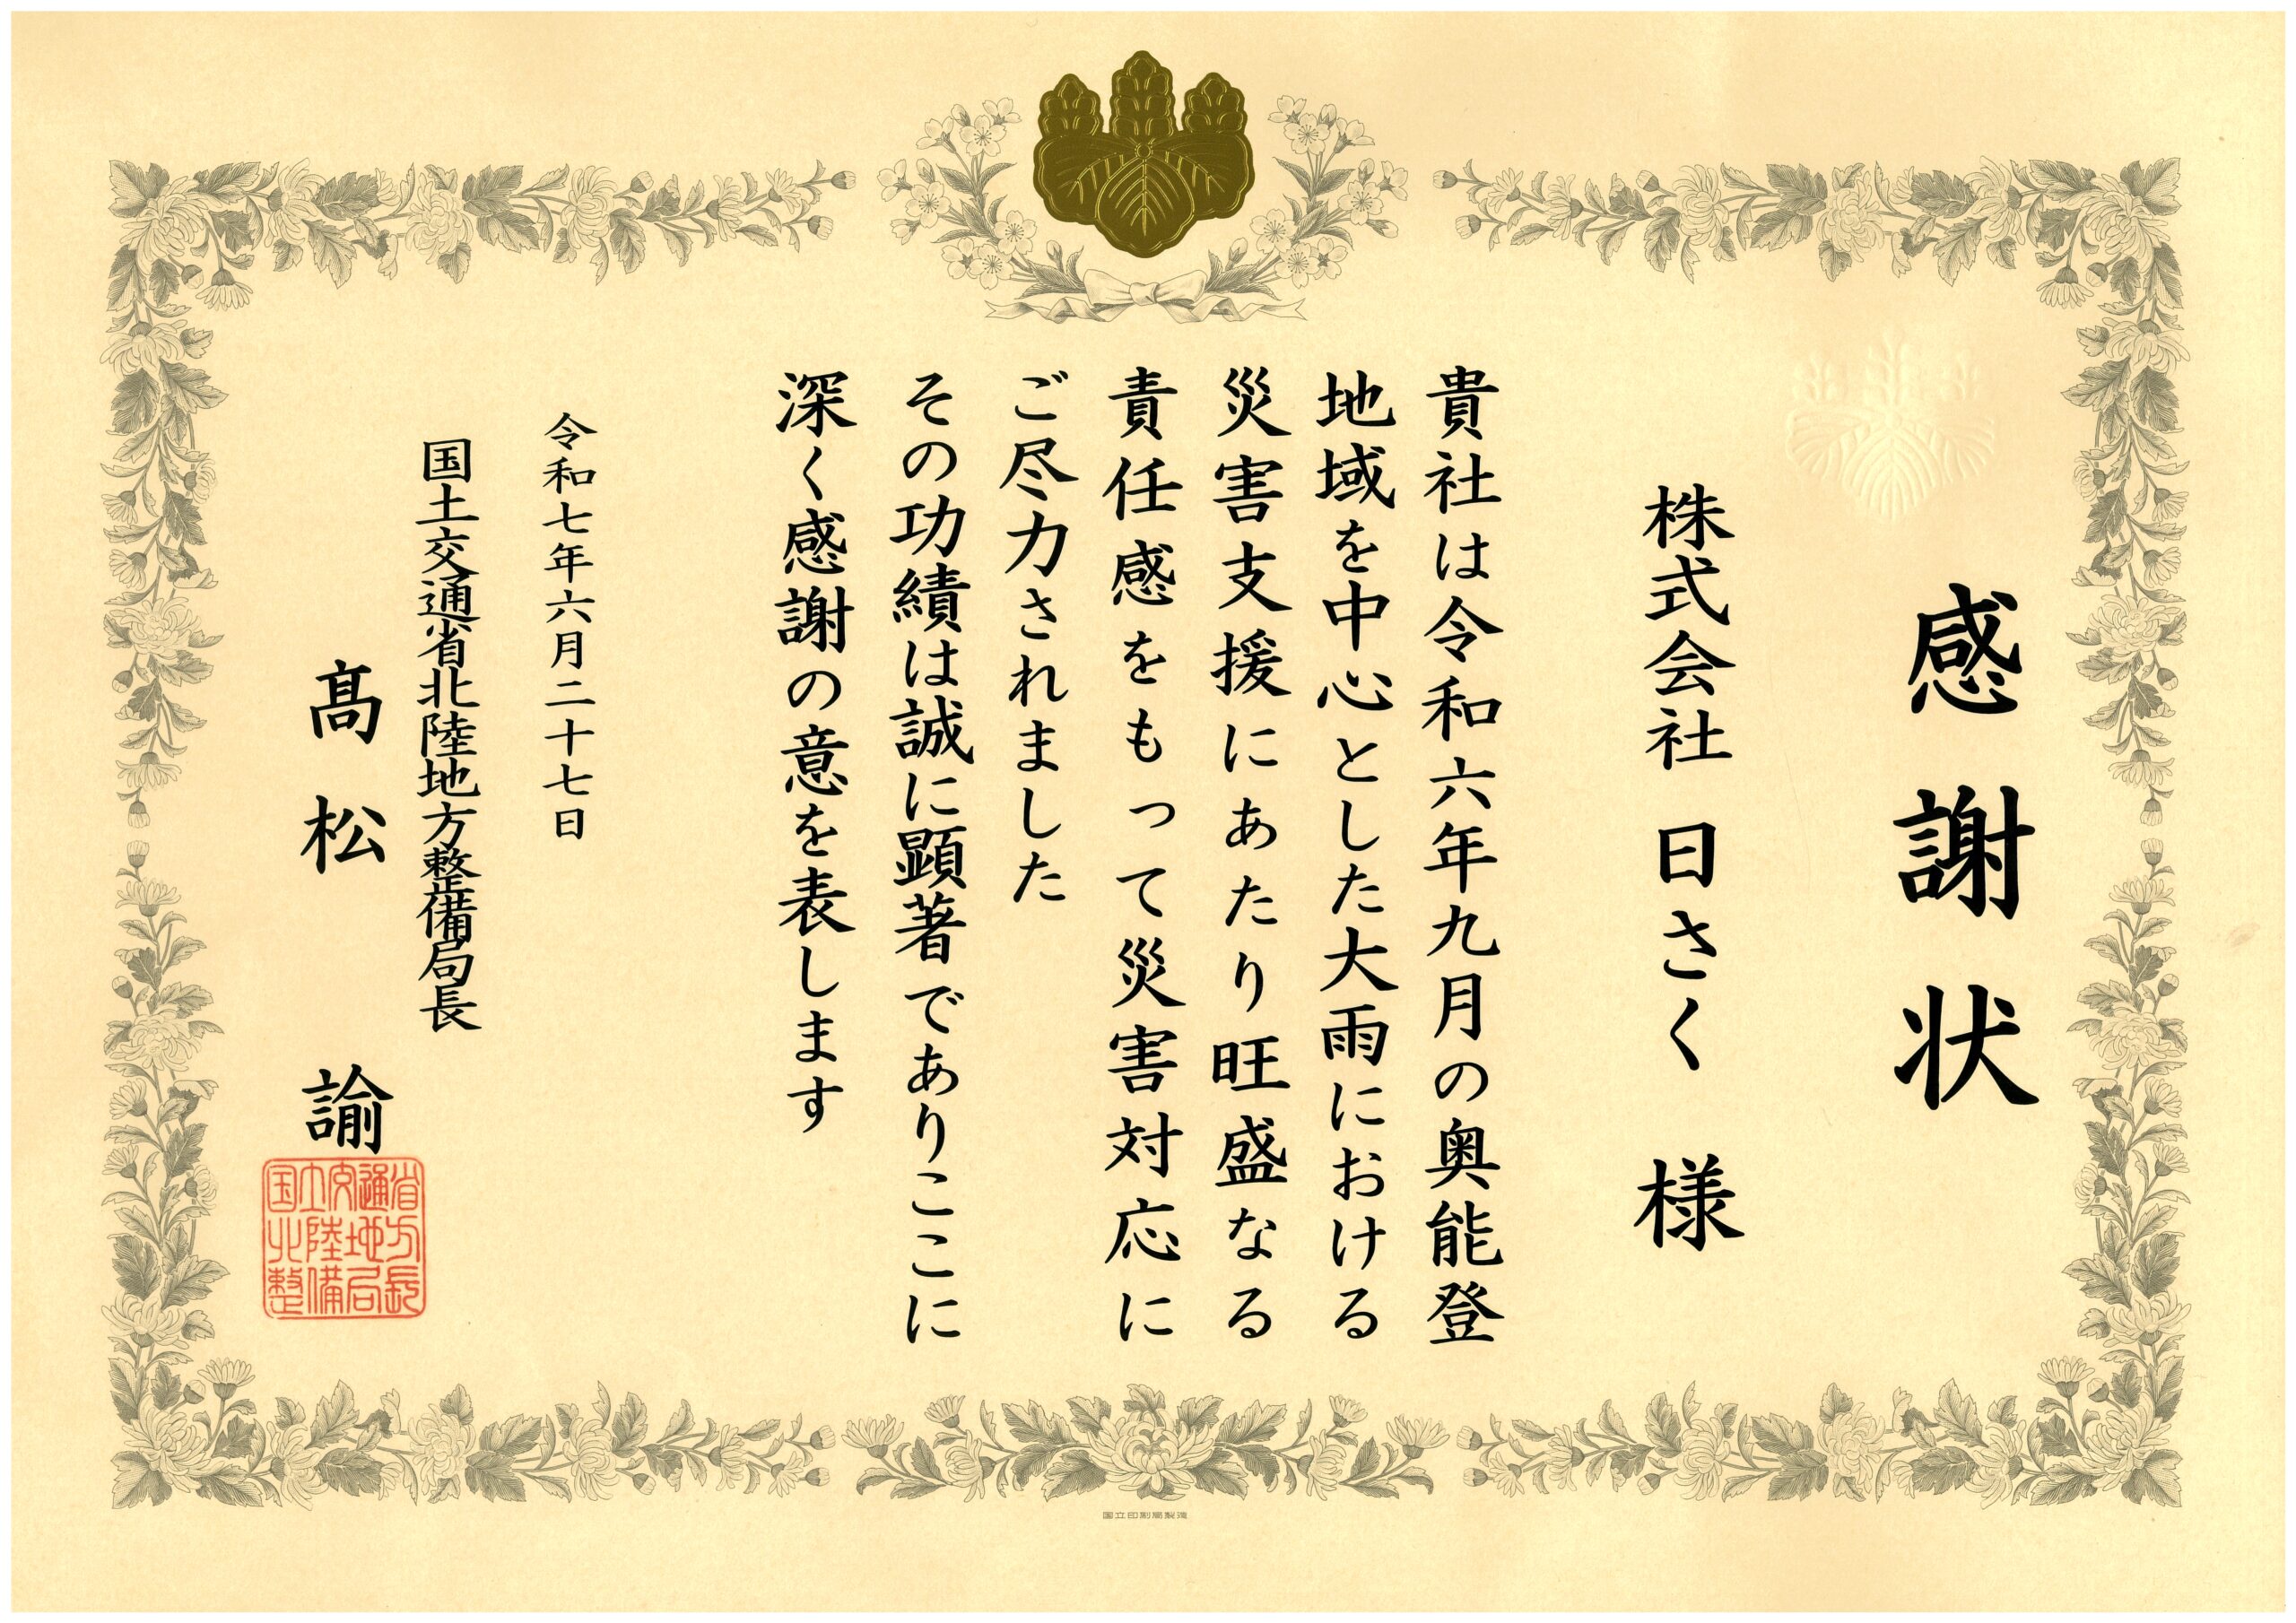 感謝状
株式会社 日さく 様
貴社は令和六年九月の奥能登
地域を中心とした大雨における
災害支援にあたり旺盛なる
責任感をもって災害対応に
ご尽力されました
その功績は誠に顕著でありここに
深く感謝の意を表します
令和七年六月二十七日
国土交通省北陸地方整備局長
髙松 諭
国土交通省
北陸地方
整備局長
国立印刷局製造